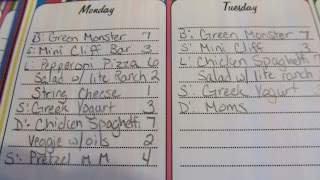 Monday
B: Green Monster 7
S: Mini Cliff Bar 3
L: Pepperoni Pizza 6
Salad w/ lite Ranch 2
String Cheese 1
S: Greek Yogurt 3
D: Chicken Spaghetti 7
Veggie w/ oils 2
S: Pretzel M M 4
Tuesday
B: Green Monster 7
S: Mini Cliff 3
L: Chicken Spaghetti 7
Salad w/ lite ranch
S: Greek Yogurt 3
D: Moms